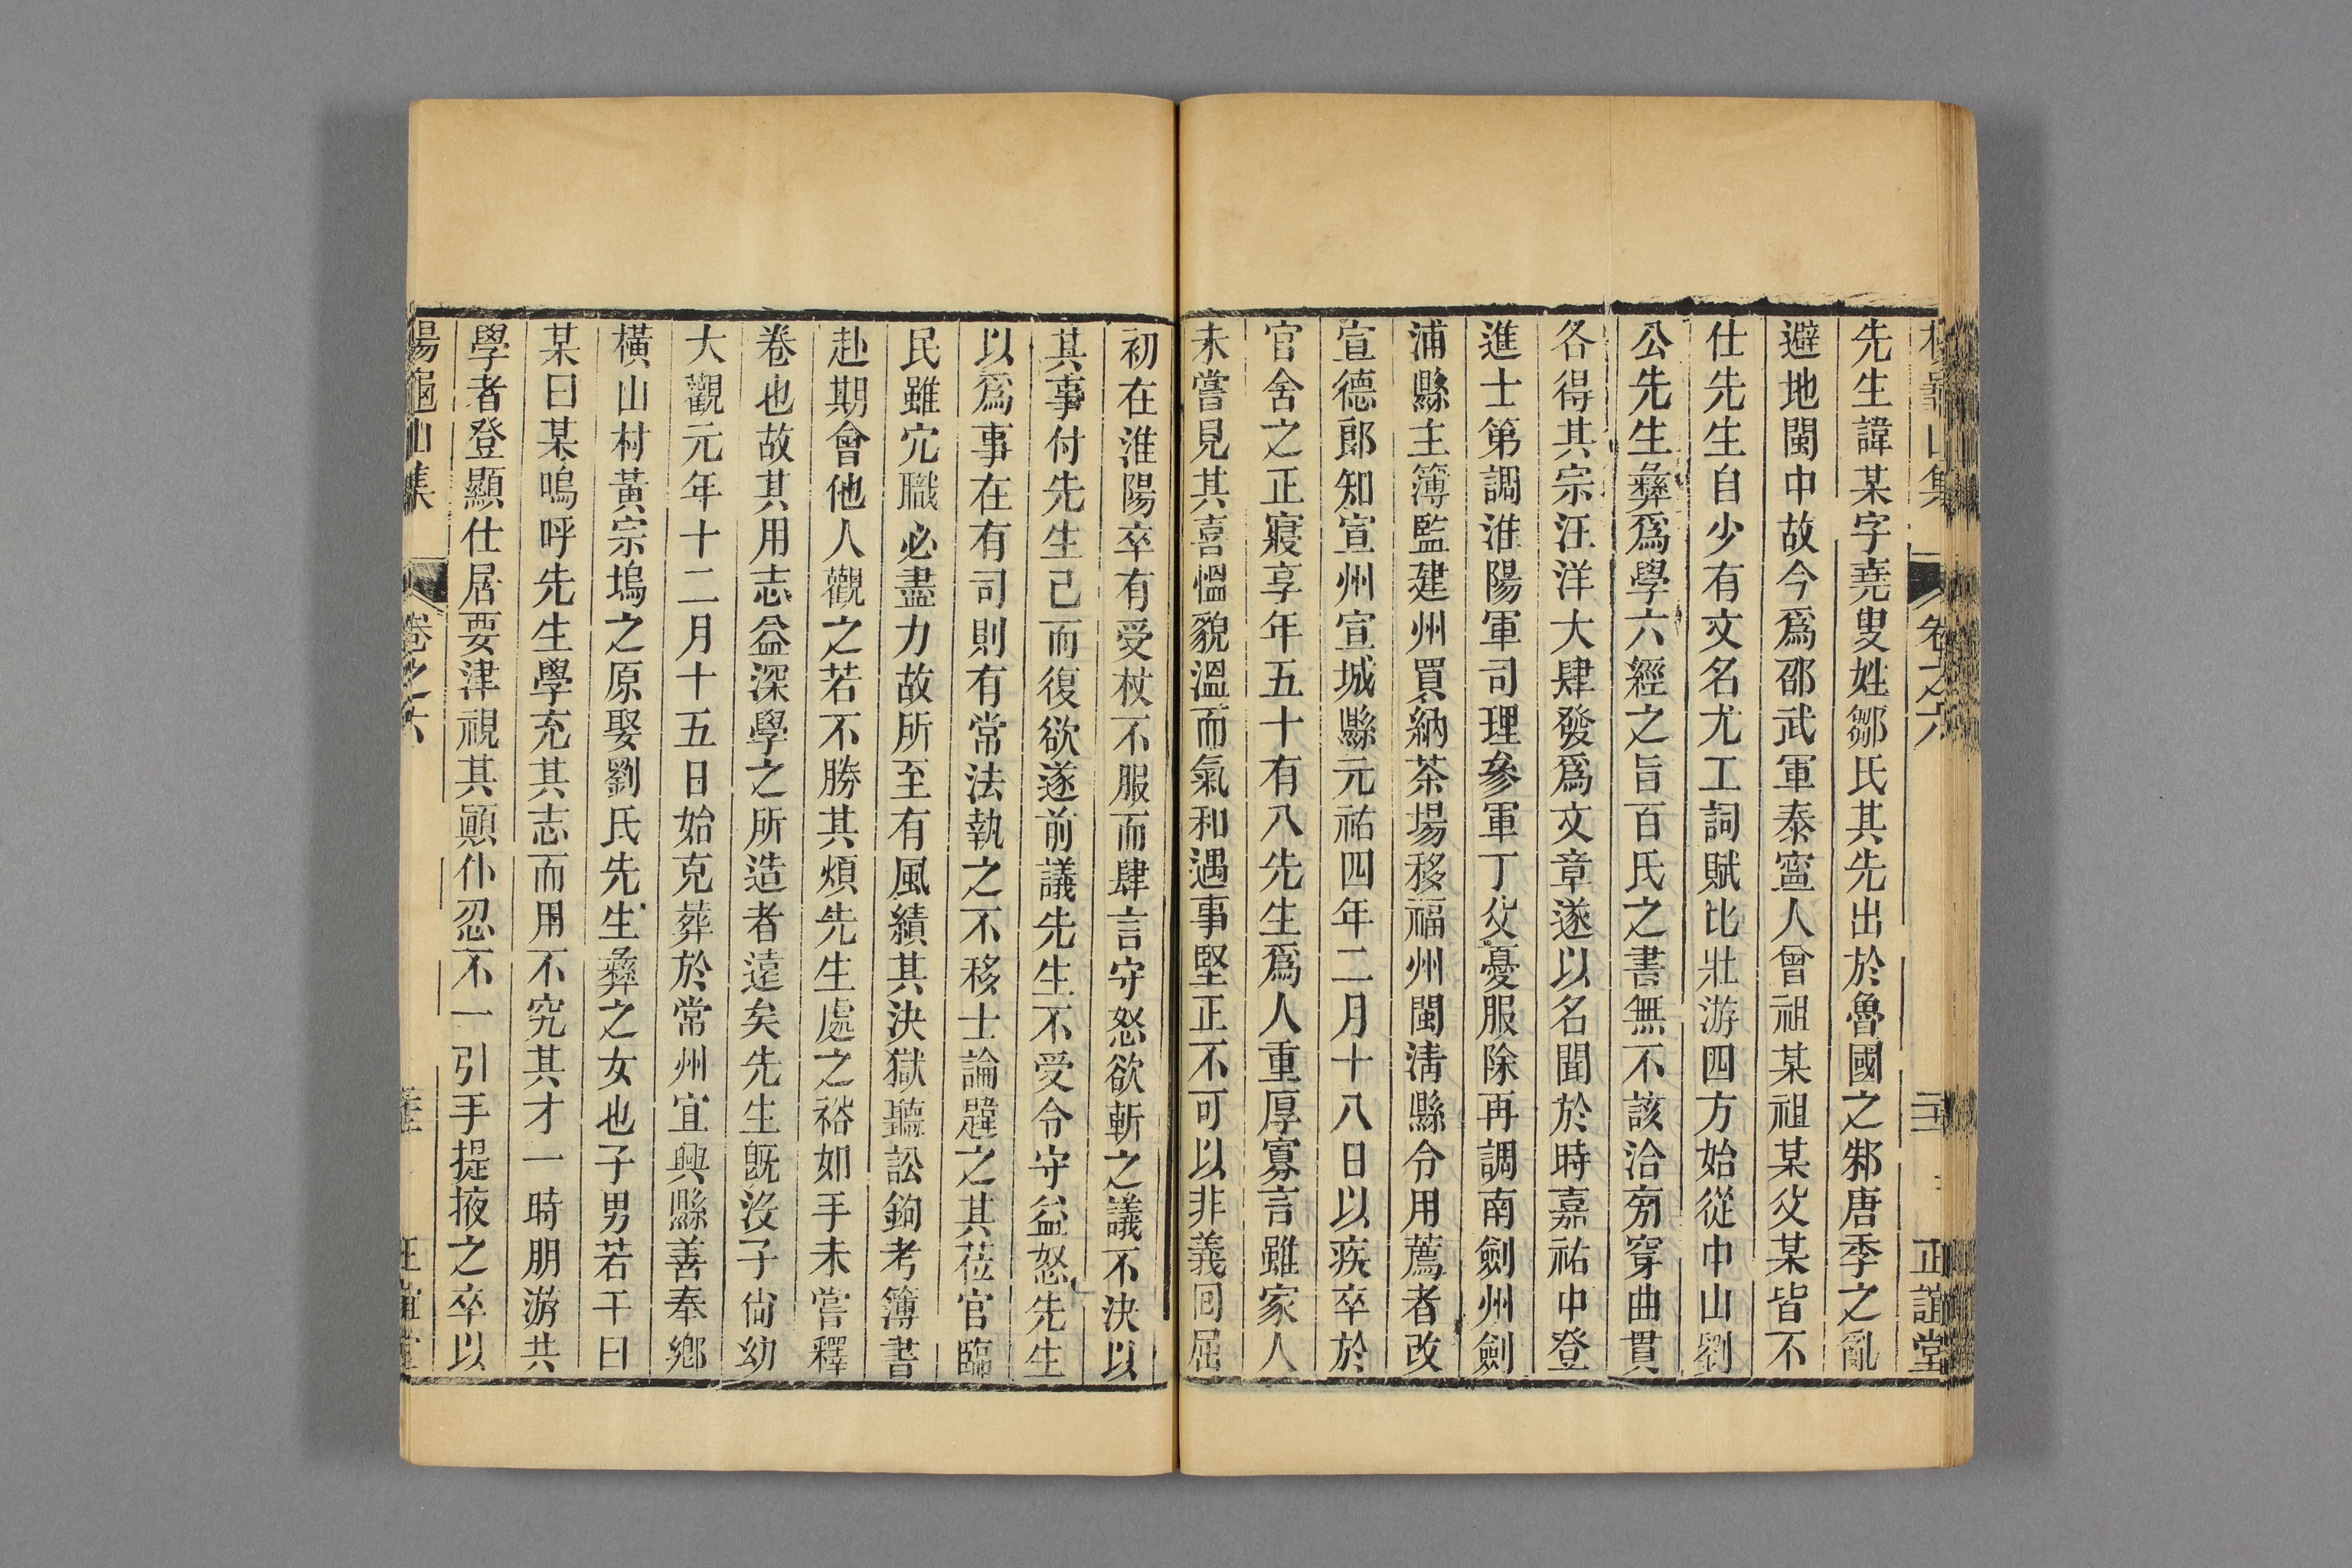 先生諱某字堯叟姓鄒氏其先出於魯國之邾唐季之亂
避地閩中故今爲邵武軍泰寧人曾祖某祖某父某皆不
仕先生自少有文名尤工詞賦比壯游四方始從中山劉
公先生彝爲學六經之旨百氏之書無不該洽旁穿曲貫
各得其宗汪洋大肆發爲文章遂以名聞於時嘉祐中登
進士第調淮陽軍司理參軍丁父憂服除再調南劍州劍
浦縣主簿監建州買納茶場移福州閩淸縣令用薦者改
宣德郎知宣州宣城縣元祐四年二月十八日以疾卒於
官舍之正寢享年五十有八先生爲人重厚寡言雖家人
未嘗見其喜慍貌溫而氣和遇事堅正不可以非義囘屈
初在淮陽卒有受杖不服而肆言守怒欲斬之議不決以
其事付先生已而復欲遂前議先生不受令守益怒先生
以爲事在有司則有常法執之不移士論韙之其莅官臨
民雖宂職必盡力故所至有風績其決獄聽訟鉤考簿書
赴期會他人觀之若不勝其煩先生處之裕如手未嘗釋
卷也故其用志益深學之所造者遠矣先生旣沒子尙幼
大觀元年十二月十五日始克葬於常州宜興縣善奉鄉
橫山村黃宗塢之原娶劉氏先生彝之女也子男若干曰
某曰某嗚呼先生學充其志而用不究其才一時朋游共
學者登顯仕居要津視其顚仆忍不一引手提掖之卒以
楊龜山集 卷之六 正誼堂